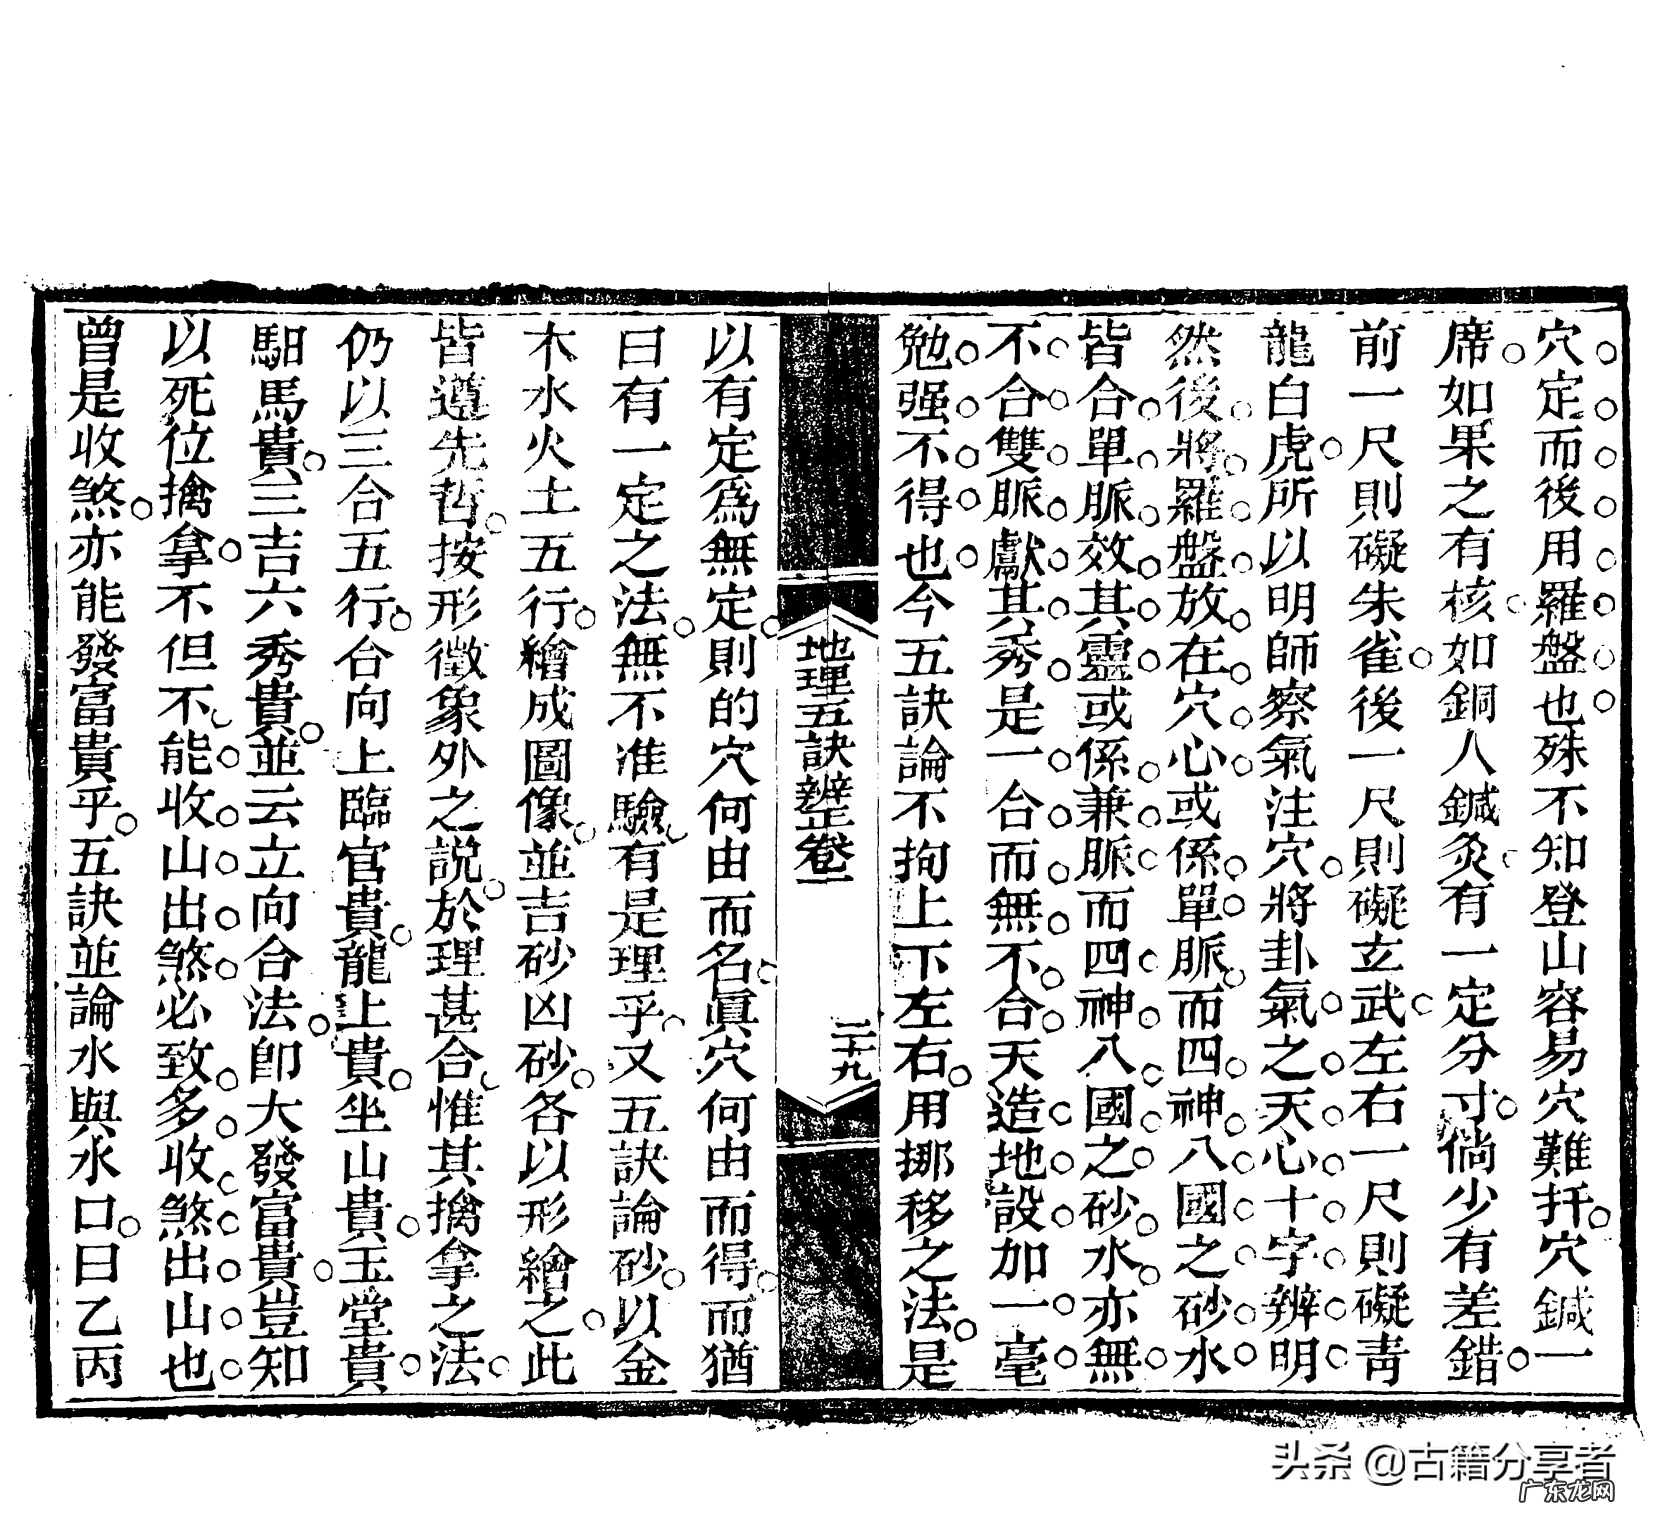 穴定而後用羅盤也殊不知登山容易穴難扦穴鍼一
席如果之有核如銅人鍼灸有一定分寸倘少有差錯
前一尺則礙朱雀後一尺則礙玄武左右一尺則礙靑
龍白虎所以明師察氣注穴將卦氣之天心十字辨明
然後將羅盤放在穴心或係單脈而四神八國之砂水
皆合單脈效其靈或係兼脈而四神八國之砂水亦無
不合雙脈獻其秀是一合而無不合天造地設加一毫
勉强不得也今五訣論不拘上下左右用挪移之法是
地理五訣辨正卷一
二十九
以有定爲無定則的穴何由而名眞穴何由而得而猶
曰有一定之法無不准驗有是理乎又五訣論砂以金
木水火土五行繪成圖像並吉砂凶砂各以形繪之此
皆遵先哲按形徵象外之說於理甚合惟其擒拿之法
仍以三合五行合向上臨官貴龍上貴坐山貴玉堂貴
馹馬貴三吉六秀貴並云立向合法卽大發富貴豈知
以死位擒拿不但不能收山出煞必致多收煞出山也
曾是收煞亦能發富貴乎五訣並論水與水口曰乙丙
头条 @古籍分享者
广东龙网